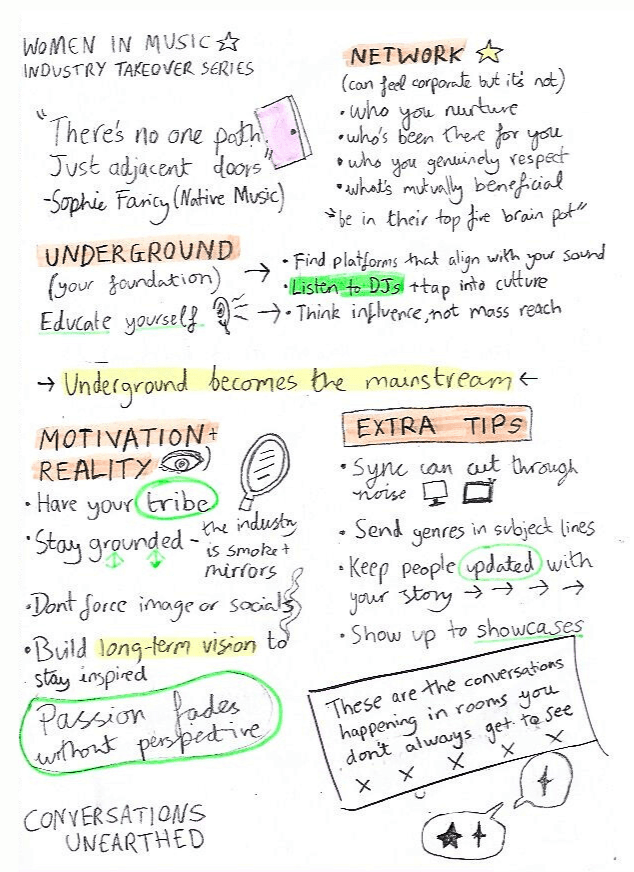 WOMEN IN MUSIC
INDUSTRY TAKEOVER SERIES
"There's no one path.
Just adjacent doors"
-Sophie Fancy (Native Music)
NETWORK
(can feel corporate but it's not)
• Who you nurture
• who's been there for you
• who you genuinely respect
• what's mutually beneficial
"be in their top five brain pot"
UNDERGROUND
(your foundation)
Educate yourself
→ • Find platforms that align with your sound
• Listen to DJs + tap into culture
→ • Think influence, not mass reach
→ Underground becomes the mainstream ←
MOTIVATION +
REALITY
• Have your tribe
• Stay grounded - the industry
is smoke +
mirrors
• Dont force image or socials
• Build long-term vision to
stay inspired
Passion fades
without perspective
EXTRA TIPS
• Sync can cut through
noise
• Send genres in subject lines
• Keep people updated with
your story → → → →
• Show up to showcases
These are the conversations
happening in rooms you
don't always get to see
x x x x x
CONVERSATIONS
UNEARTHED